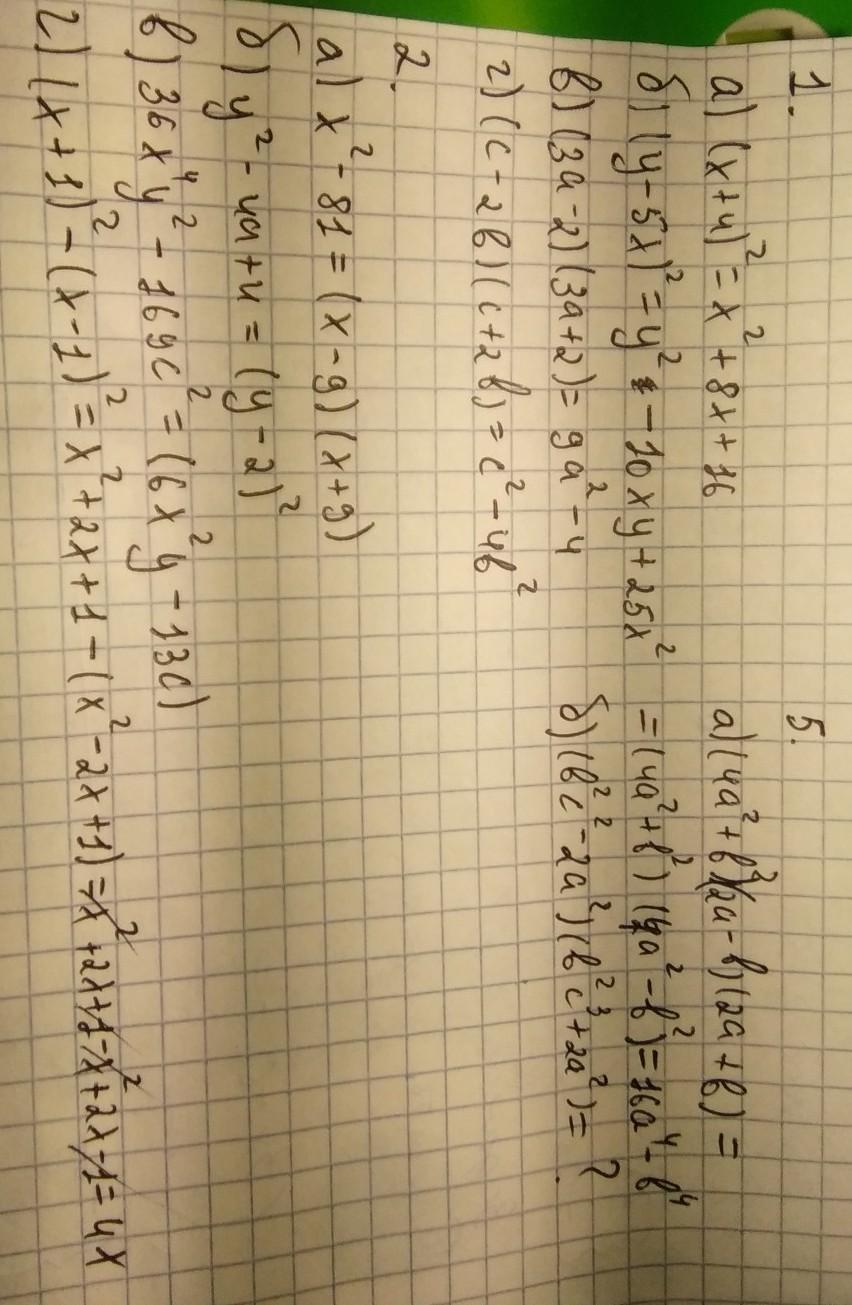 1.
а) (x+4)² = x² + 8x + 16
б) (y-5x)² = y² - 10xy + 25x²
в) (3a-2)(3a+2) = 9a² - 4
г) (c-2b)(c+2b) = c² - 4b²
2.
а) x² - 81 = (x-9)(x+9)
б) y² - 4a + 4 = (y-2)²
в) 36x⁴y² - 169c² = (6x²y - 13c)
г) (x+1)² - (x-1)² = x² + 2x + 1 - (x² - 2x + 1) = x² + 2x + 1 - x² + 2x - 1 = 4x
5.
а) (4a² + b²)(2a-b)(2a+b) =
= (4a² + b²)(4a² - b²) = 16a⁴ - b⁴
б) (b²c² - 2a²)(b²c³ + 2a²) = ?